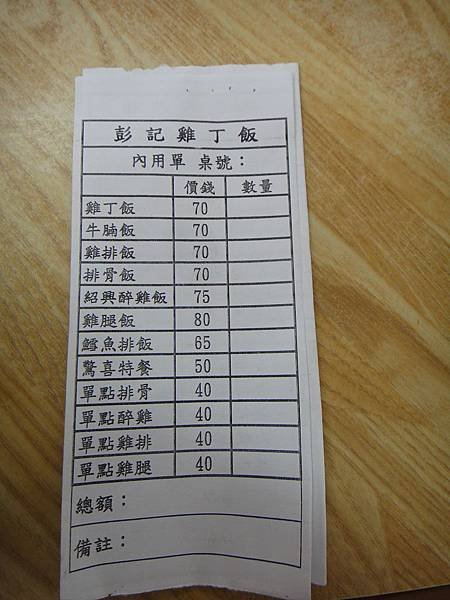 彭記雞丁飯
內用單 桌號：
價錢 數量
雞丁飯 70
牛腩飯 70
雞排飯 70
排骨飯 70
紹興醉雞飯 75
雞腿飯 80
鱈魚排飯 65
驚喜特餐 50
單點排骨 40
單點醉雞 40
單點雞排 40
單點雞腿 40
總額：
備註：